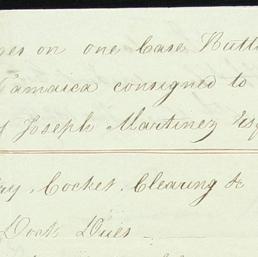 ges on one Case Butt
Jamaica consigned to
Joseph Martinez Esq
ry, Cocket, Clearing &
Dock Dues